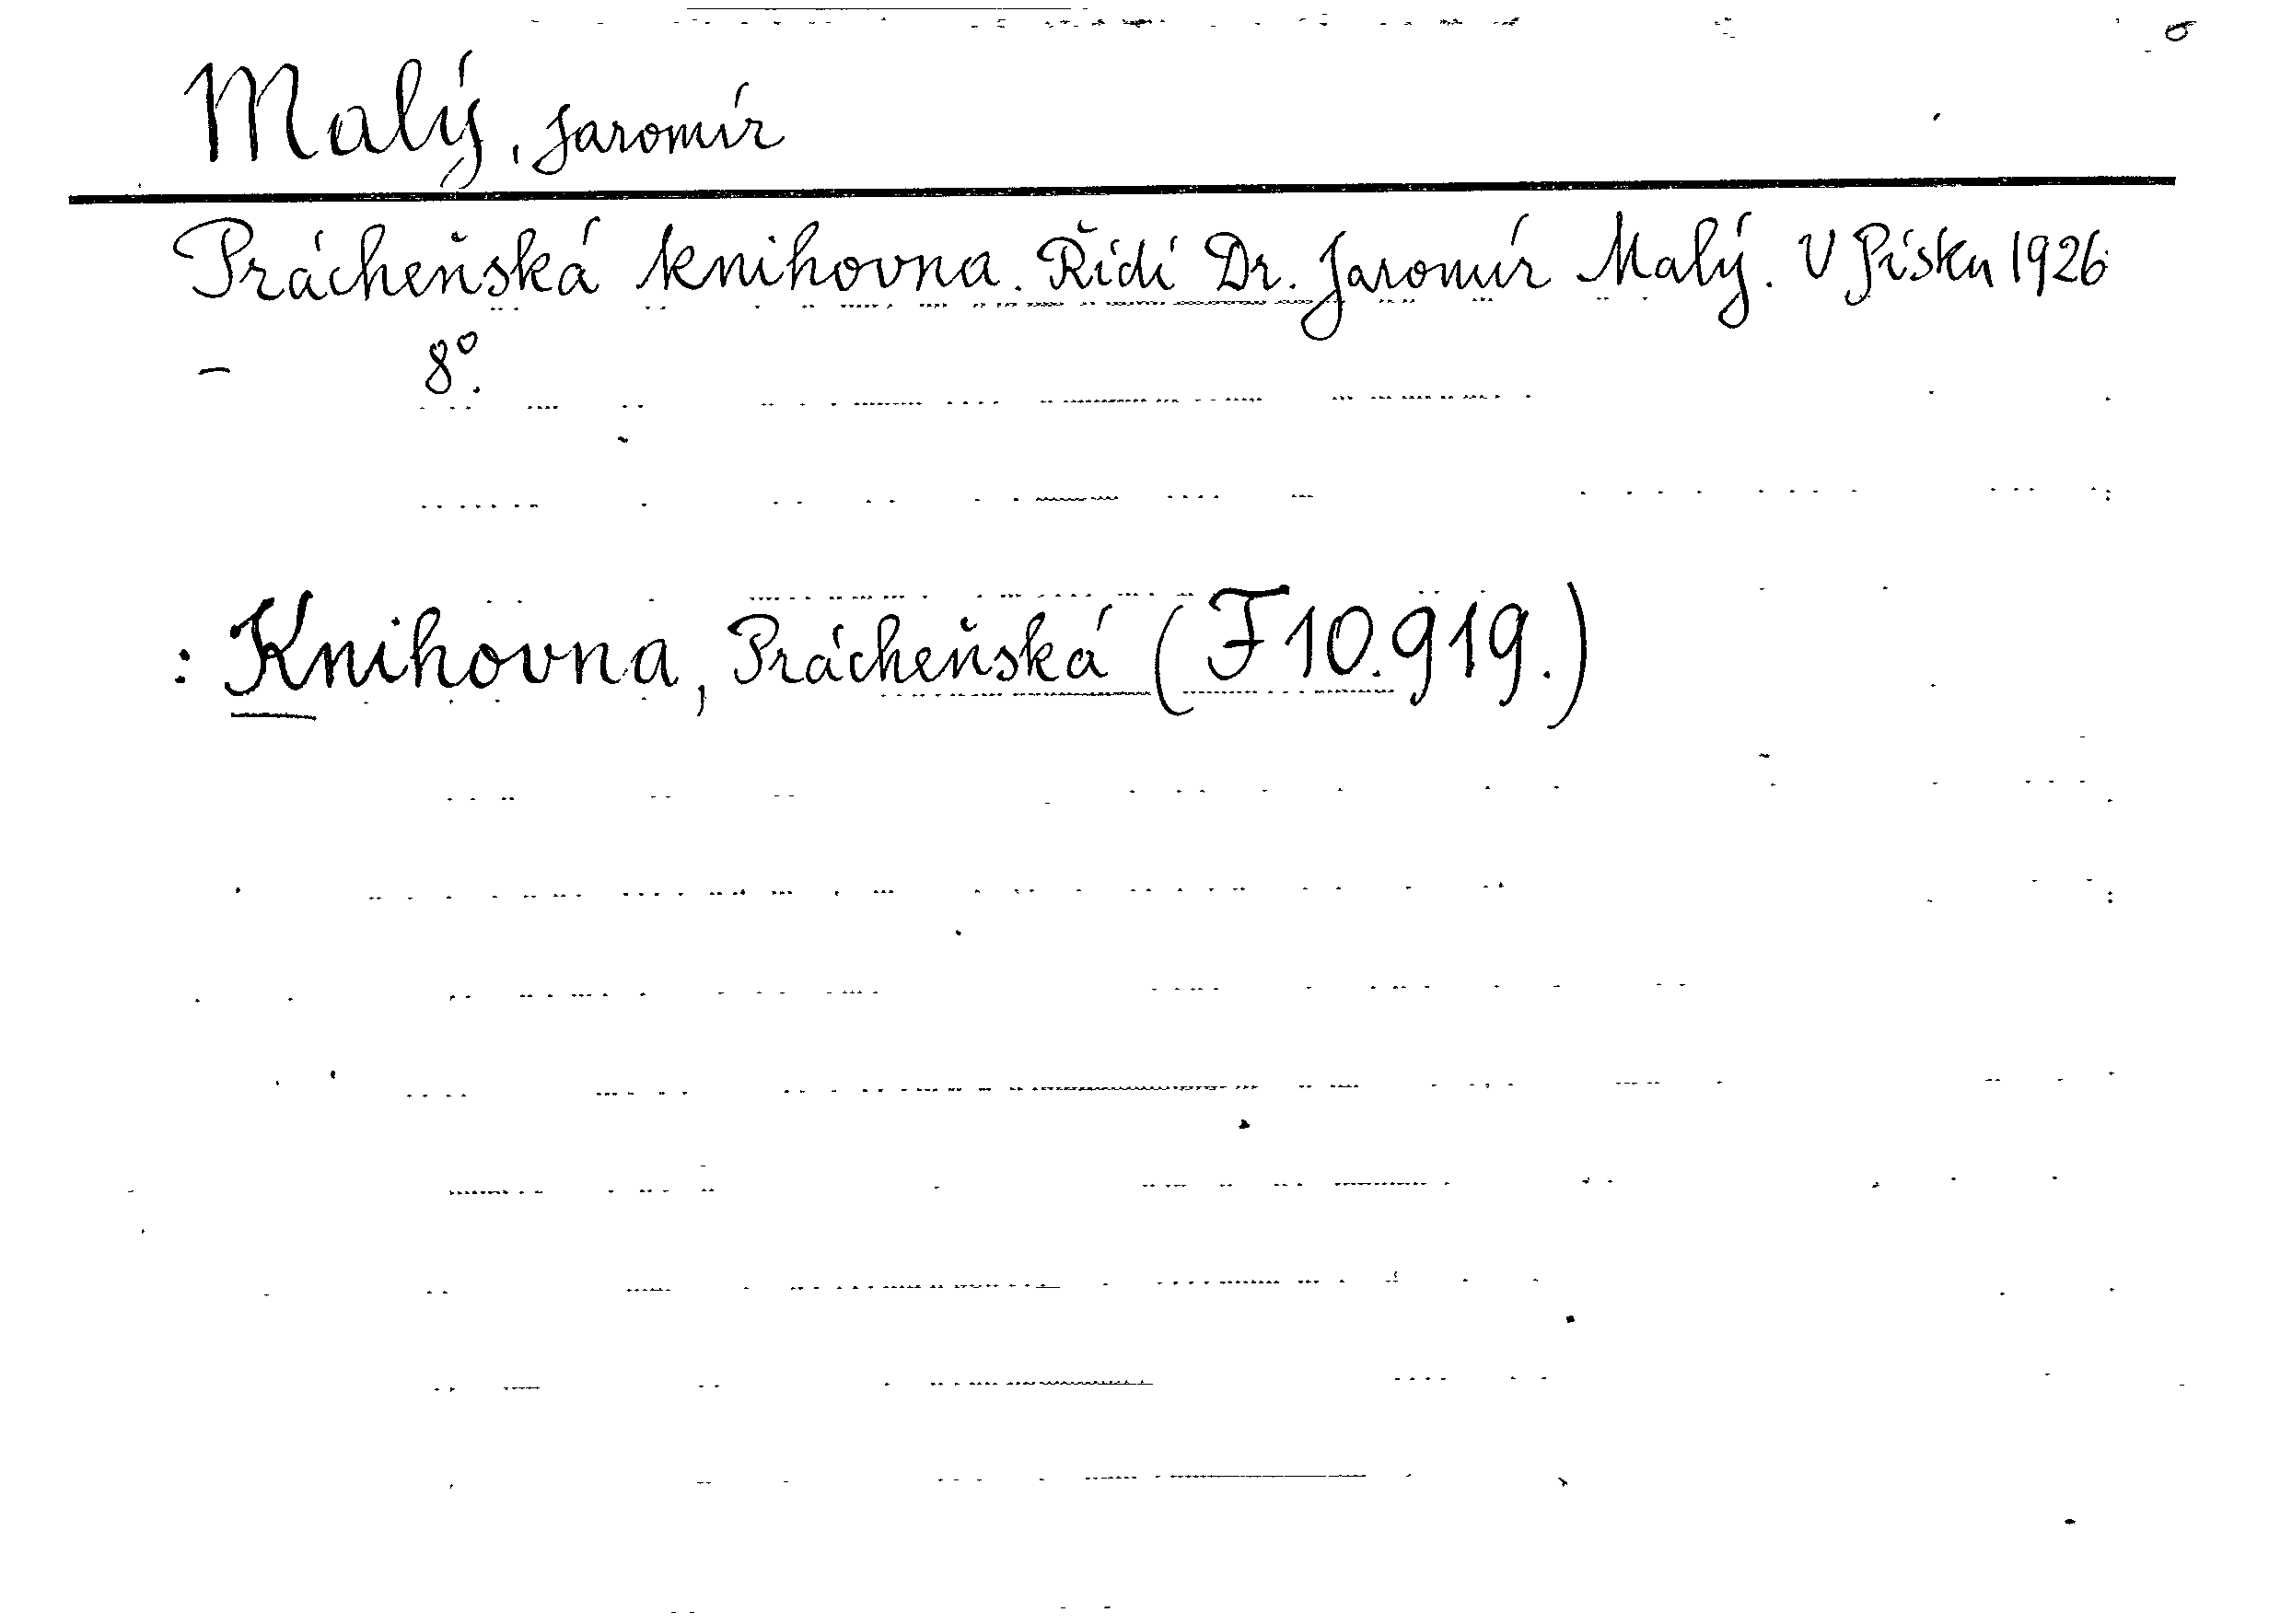 Malý, Jaromír
Prácheňská knihovna. Řídí Dr. Jaromír Malý. V Písku 1926
– 8°.
: Knihovna, Prácheňská (F10.919.)